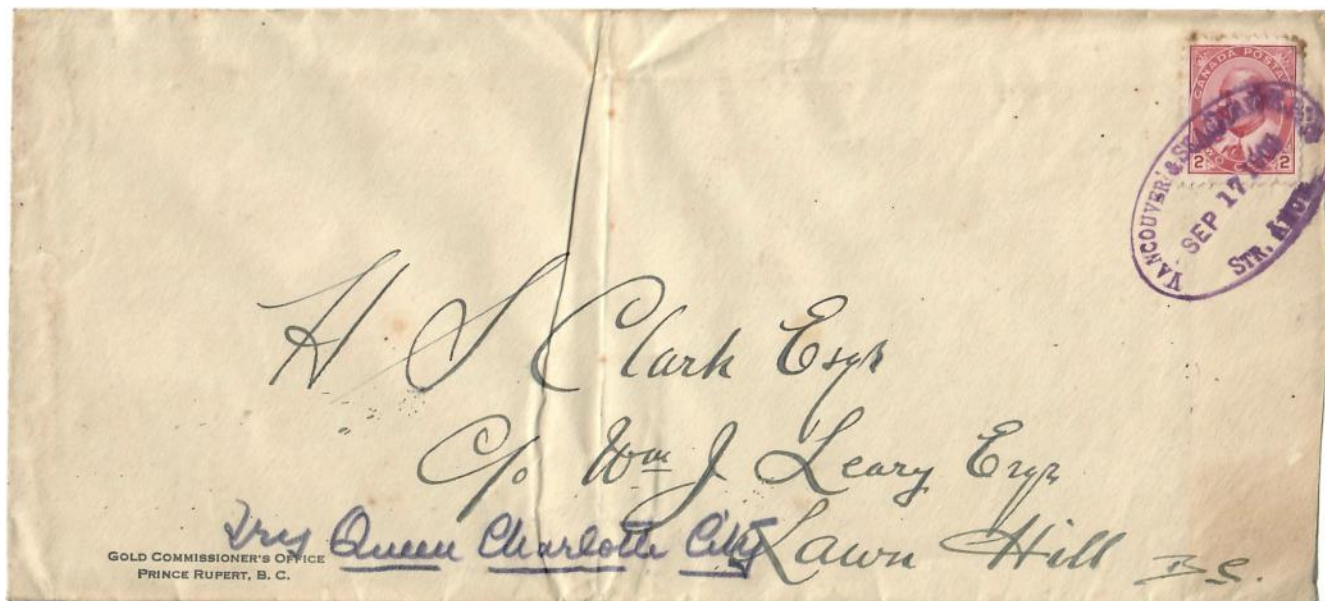 CANADA POSTAGE
2 2
VANCOUVER & SKAGWAY
SEP 17 1909
STR. AMUR
H S Clark Esqr
C/o Wm J. Leary Esqr
Try Queen Charlotte City
Lawn Hill B.C.
GOLD COMMISSIONER'S OFFICE
PRINCE RUPERT, B. C.